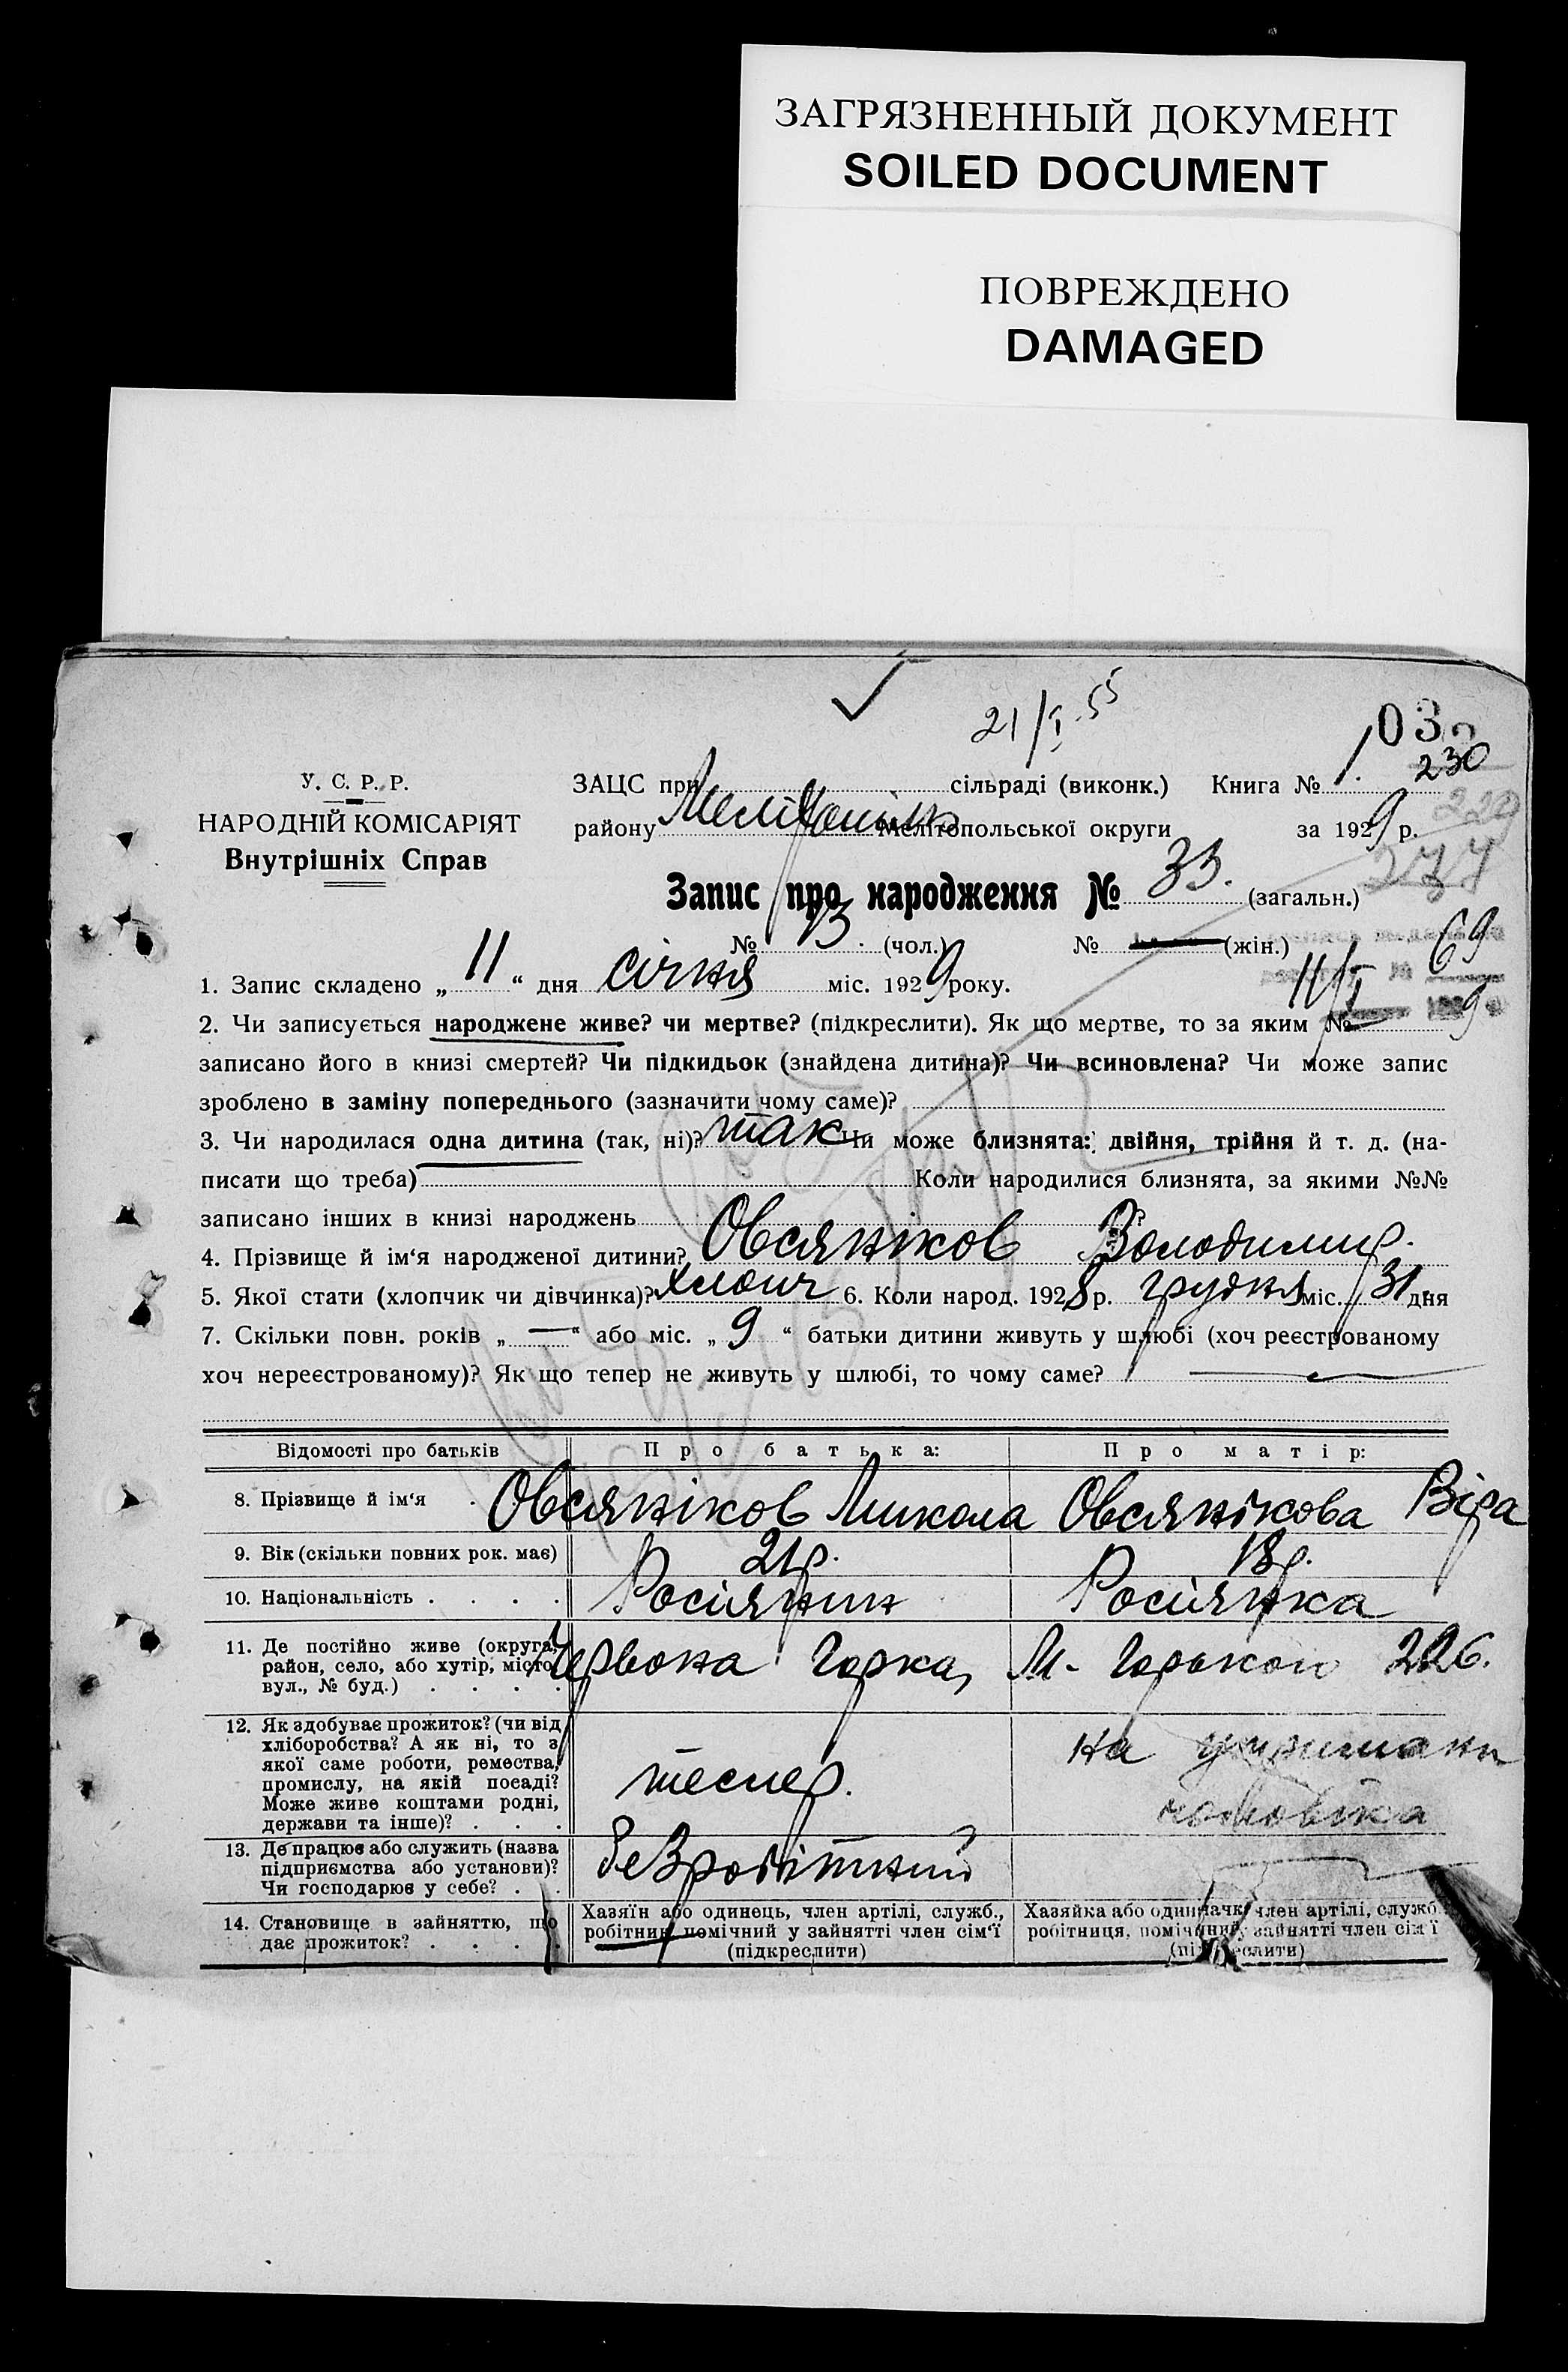 ЗАГРЯЗНЕННЫЙ ДОКУМЕНТ
SOILED DOCUMENT
ПОВРЕЖДЕНО
DAMAGED
21/I 55
103
230
У. С. Р. Р.
НАРОДНІЙ КОМІСАРІЯТ
Внутрішніх Справ
ЗАЦС при сільраді (виконк.) Книга № 1.
району Мелітопіль Мелітопольської округи за 1929 р.
229
277
Запис про народження № 33. (загальн.)
№ 13. (чол.) № (жін.)
69
11/I
9
1. Запис складено „ 11 “ дня січня міс. 1929 року.
2. Чи записується народжене живе? чи мертве? (підкреслити). Як що мертве, то за яким №
записано його в книзі смертей? Чи підкидьок (знайдена дитина)? Чи всиновлена? Чи може запис
зроблено в заміну попереднього (зазначити чому саме)?
3. Чи народилася одна дитина (так, ні)? так Чи може близнята: двійня, трійня й т. д. (на-
писати що треба) Коли народилися близнята, за якими №№
записано інших в книзі народжень ?
4. Прізвище й ім‘я народженої дитини? Овсяніков Володимир.
5. Якої стати (хлопчик чи дівчинка)? хлопч 6. Коли народ. 1928 р. грудня міс. 31 дня
7. Скільки повн. років „ — “ або міс. „ 9 “ батьки дитини живуть у шлюбі (хоч реєстрованому
хоч нереєстрованому)? Як що тепер не живуть у шлюбі, то чому саме? —
Відомості про батьків Про батька: Про матір:
8. Прізвище й ім‘я . Овсяніков Микола Овсянікова Віра
9. Вік (скільки повних рок. має) 21р. 18р.
10. Національність . . . . Росіянин Росіянка
11. Де постійно живе (округа,
район, село, або хутір, місто,
вул., № буд.) . . . .
Червона Горка, М. Горького 226.
12. Як здобуває прожиток? (чи від
хліборобства? А як ні, то з
якої саме роботи, ремества,
промислу, на якій посаді?
Може живе коштами родні,
держави та інше)? . . .
тесляр.
на утриманн
чоловіка
13. Де працює або служить (назва
підприємства або установи)?
Чи господарює у себе? . .
безробітний
14. Становище в зайняттю, що
дає прожиток? . . . .
Хазяїн або одинець, член артілі, служб.,
робітник, помічний у зайнятті член сім‘ї
(підкреслити)
Хазяйка або одиначка, член артілі, служб.
робітниця, помічний у зайнятті член сім‘ї
(підкреслити)